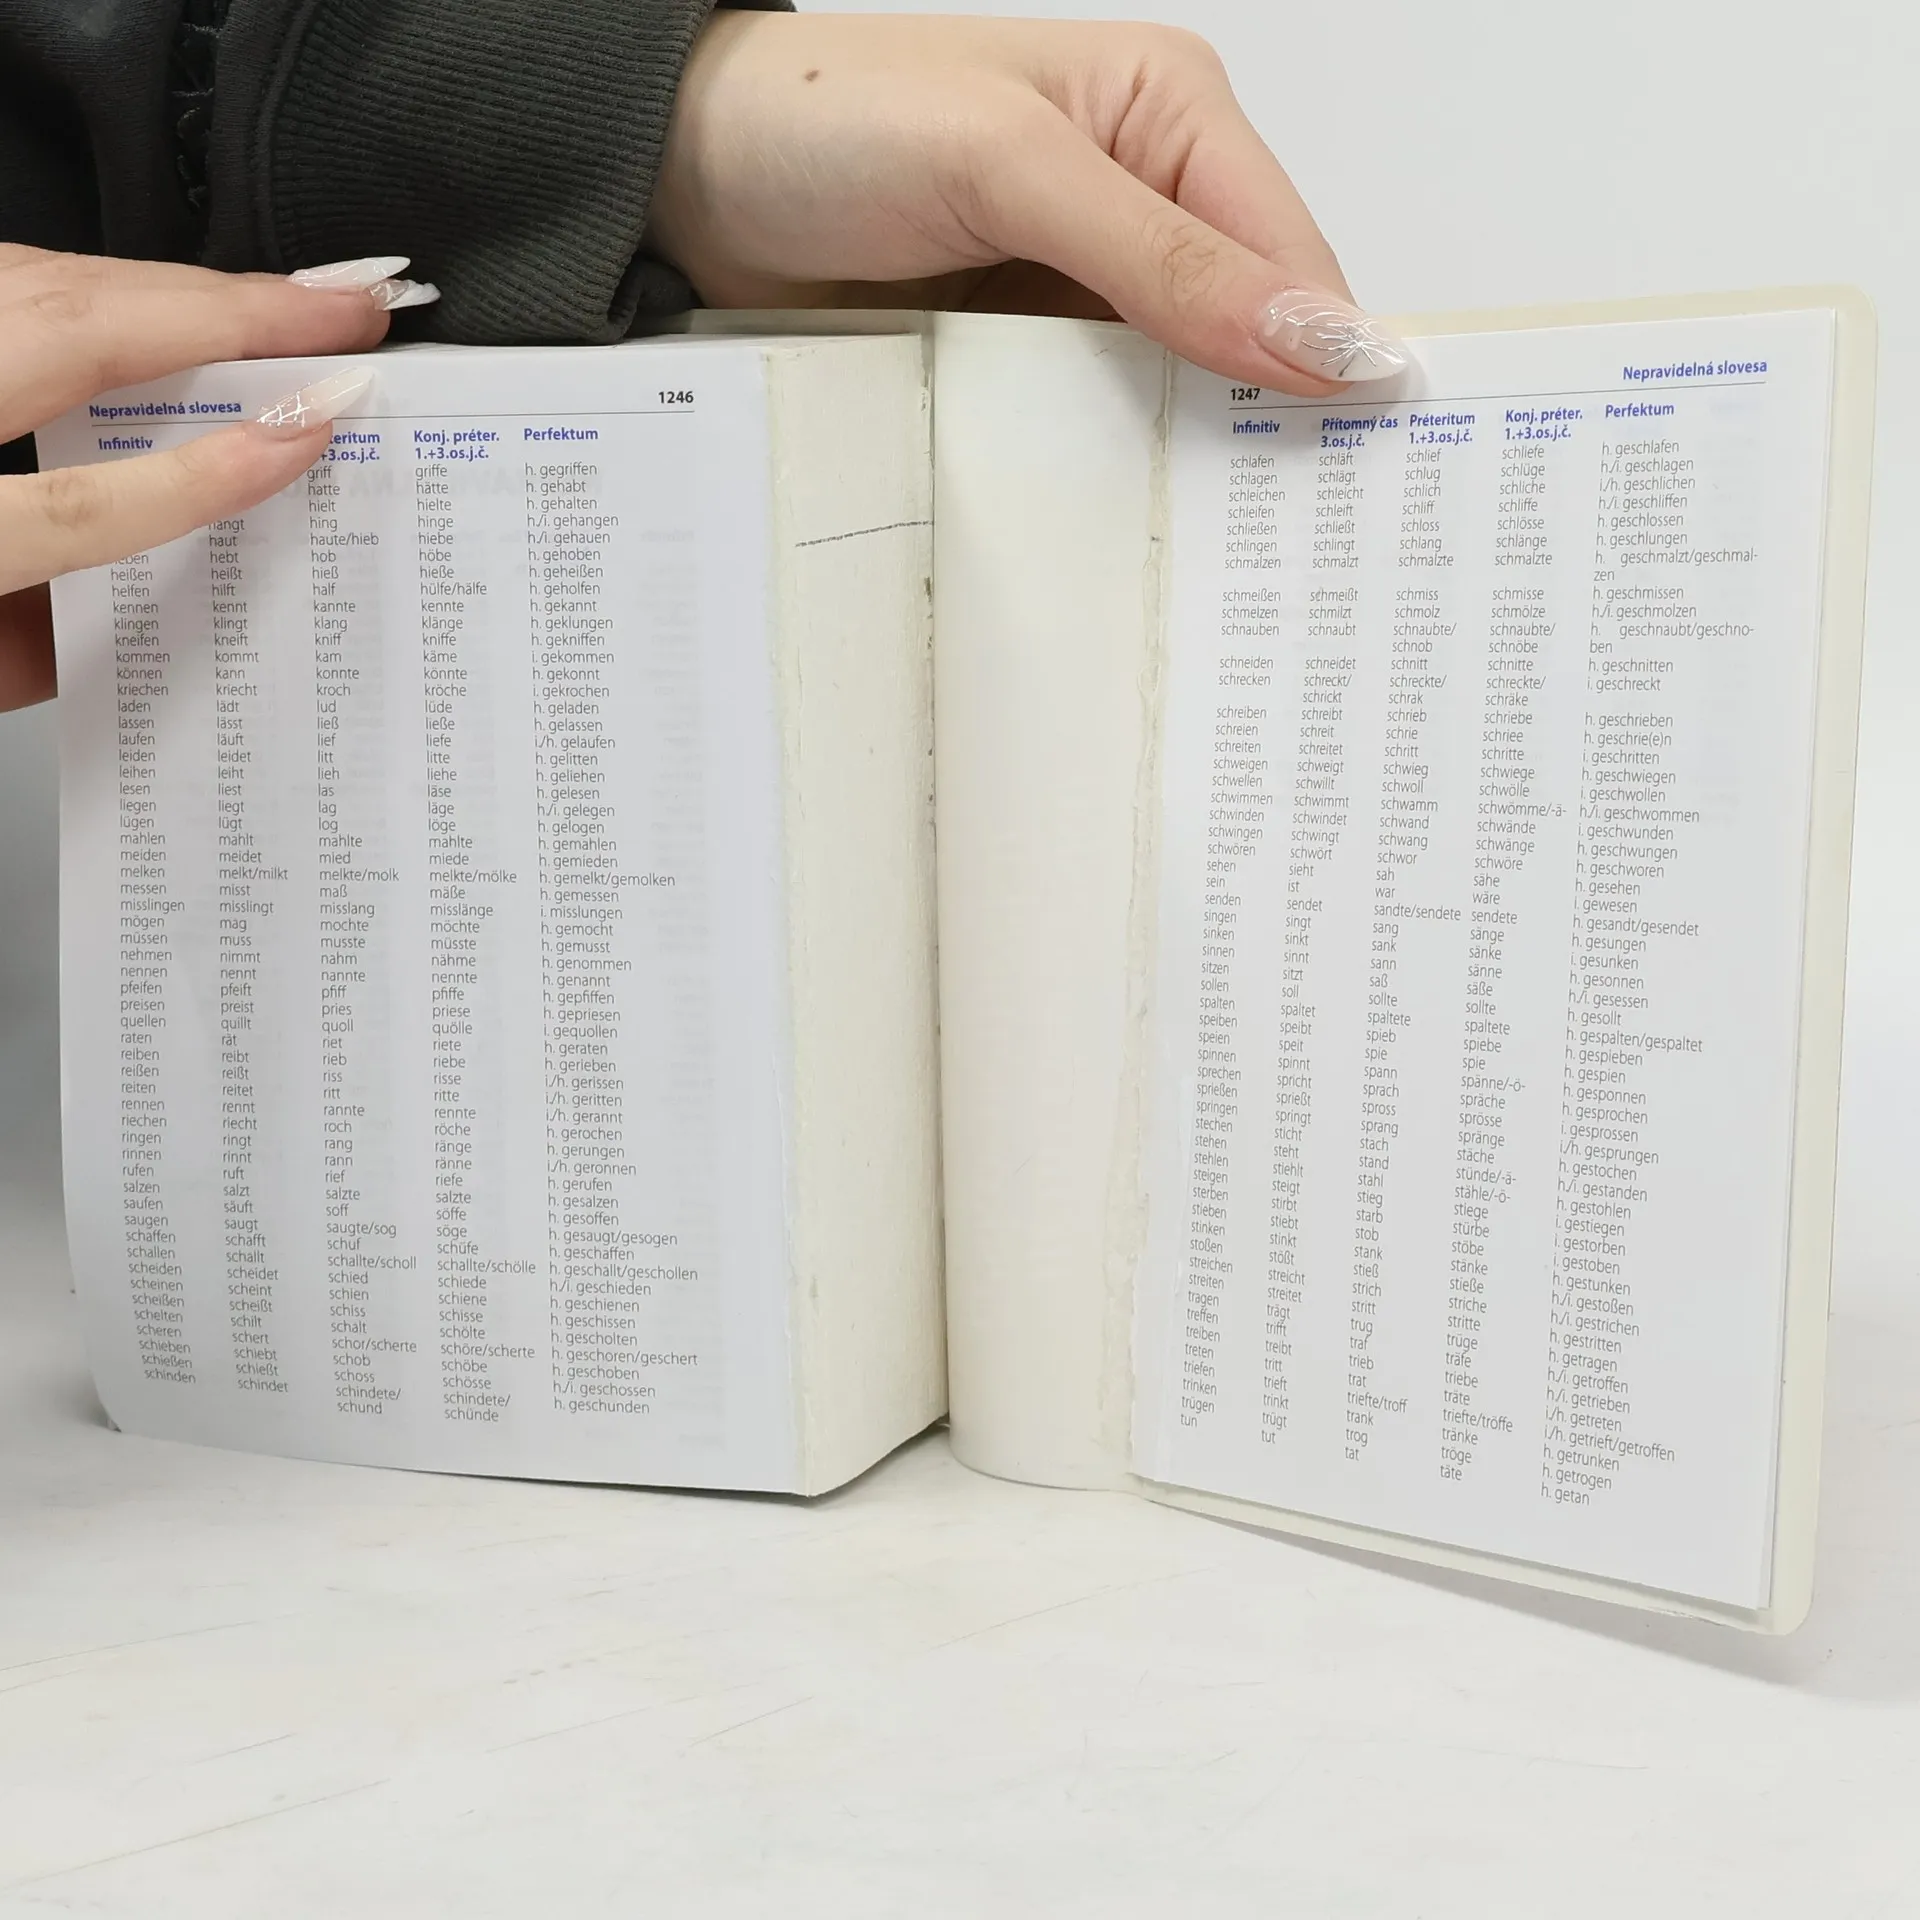 Nepravidelná slovesa 1246
Infinitiv Konj. préter. Perfektum
1.+3.os.j.č.
griff griffe h. gegriffen
hatte hätte h. gehabt
hielt hielte h. gehalten
hing hinge h./i. gehangen
haut haute/hieb hiebe h./i. gehauen
hebt hob höbe h. gehoben
heißen heißt hieß hieße h. geheißen
helfen hilft half hülfe/hälfe h. geholfen
kennen kennt kannte kennte h. gekannt
klingen klingt klang klänge h. geklungen
kneifen kneift kniff kniffe h. gekniffen
kommen kommt kam käme i. gekommen
können kann konnte könnte h. gekonnt
kriechen kriecht kroch kröche i. gekrochen
laden lädt lud lüde h. geladen
lassen lässt ließ ließe h. gelassen
laufen läuft lief liefe i./h. gelaufen
leiden leidet litt litte h. gelitten
leihen leiht lieh liehe h. geliehen
lesen liest las läse h. gelesen
liegen liegt lag läge h./i. gelegen
lügen lügt log löge h. gelogen
mahlen mahlt mahlte mahlte h. gemahlen
meiden meidet mied miede h. gemieden
melken melkt/milkt melkte/molk melkte/mölke h. gemelkt/gemolken
messen misst maß mäße h. gemessen
misslingen misslingt misslang misslänge i. misslungen
mögen mag mochte möchte h. gemocht
müssen muss musste müsste h. gemusst
nehmen nimmt nahm nähme h. genommen
nennen nennt nannte nennte h. genannt
pfeifen pfeift pfiff pfiffe h. gepfiffen
preisen preist pries priese h. gepriesen
quellen quillt quoll quölle i. gequollen
raten rät riet riete h. geraten
reiben reibt rieb riebe h. gerieben
reißen reißt riss risse i./h. gerissen
reiten reitet ritt ritte i./h. geritten
rennen rennt rannte rennte i./h. gerannt
riechen riecht roch röche h. gerochen
ringen ringt rang ränge h. gerungen
rinnen rinnt rann ränne i./h. geronnen
rufen ruft rief riefe h. gerufen
salzen salzt salzte salzte h. gesalzen
saufen säuft soff söffe h. gesoffen
saugen saugt saugte/sog söge h. gesaugt/gesogen
schaffen schafft schuf schüfe h. geschaffen
schallen schallt schallte/scholl schallte/schölle h. geschallt/geschollen
scheiden scheidet schied schiede h./i. geschieden
scheinen scheint schien schiene h. geschienen
scheißen scheißt schiss schisse h. geschissen
schelten schilt schalt schölte h. gescholten
scheren schert schor/scherte schöre/scherte h. geschoren/geschert
schieben schiebt schob schöbe h. geschoben
schießen schießt schoss schösse h./i. geschossen
schinden schindet schindete/ schindete/ h. geschunden
schund schünde
1247 Nepravidelná slovesa
Infinitiv Přítomný čas Préteritum Konj. préter. Perfektum
3.os.j.č. 1.+3.os.j.č. 1.+3.os.j.č.
schlafen schläft schlief schliefe h. geschlafen
schlagen schlägt schlug schlüge h./i. geschlagen
schleichen schleicht schlich schliche i./h. geschlichen
schleifen schleift schliff schliffe h./i. geschliffen
schließen schließt schloss schlösse h. geschlossen
schlingen schlingt schlang schlänge h. geschlungen
schmalzen schmalzt schmalzte schmalzte h. geschmalzt/geschmal-
zen
schmeißen schmeißt schmiss schmisse h. geschmissen
schmelzen schmilzt schmolz schmölze h./i. geschmolzen
schnauben schnaubt schnaubte/ schnaubte/ h. geschnaubt/geschno-
schnob schnöbe ben
schneiden schneidet schnitt schnitte h. geschnitten
schrecken schreckt/ schreckte/ schreckte/ i. geschreckt
schrickt schrak schräke
schreiben schreibt schrieb schriebe h. geschrieben
schreien schreit schrie schriee h. geschrie(e)n
schreiten schreitet schritt schritte i. geschritten
schweigen schweigt schwieg schwiege h. geschwiegen
schwellen schwillt schwoll schwölle i. geschwollen
schwimmen schwimmt schwamm schwömme/-ä- h./i. geschwommen
schwinden schwindet schwand schwände i. geschwunden
schwingen schwingt schwang schwänge h. geschwungen
schwören schwört schwor schwöre h. geschworen
sehen sieht sah sähe h. gesehen
sein ist war wäre i. gewesen
senden sendet sandte/sendete sendete h. gesandt/gesendet
singen singt sang sänge h. gesungen
sinken sinkt sank sänke i. gesunken
sinnen sinnt sann sänne h. gesonnen
sitzen sitzt saß säße h./i. gesessen
sollen soll sollte sollte h. gesollt
spalten spaltet spaltete spaltete h. gespalten/gespaltet
speiben speibt spieb spiebe h. gespieben
speien speit spie spie h. gespien
spinnen spinnt spann spänne/-ö- h. gesponnen
sprechen spricht sprach spräche h. gesprochen
sprießen sprießt spross sprösse i. gesprossen
springen springt sprang spränge i./h. gesprungen
stechen sticht stach stäche h. gestochen
stehen steht stand stünde/-ä- h./i. gestanden
stehlen stiehlt stahl stähle/-ö- h. gestohlen
steigen steigt stieg stiege i. gestiegen
sterben stirbt starb stürbe i. gestorben
stieben stiebt stob stöbe i. gestoben
stinken stinkt stank stänke h. gestunken
stoßen stößt stieß stieße h./i. gestoßen
streichen streicht strich striche h./i. gestrichen
streiten streitet stritt stritte h. gestritten
tragen trägt trug trüge h. getragen
treffen trifft traf träfe h./i. getroffen
treiben treibt trieb triebe h./i. getrieben
treten tritt trat träte i./h. getreten
triefen trieft triefte/troff triefte/tröffe i./h. getrieft/getroffen
trinken trinkt trank tränke h. getrunken
trügen trügt trog tröge h. getrogen
tun tut tat täte h. getan